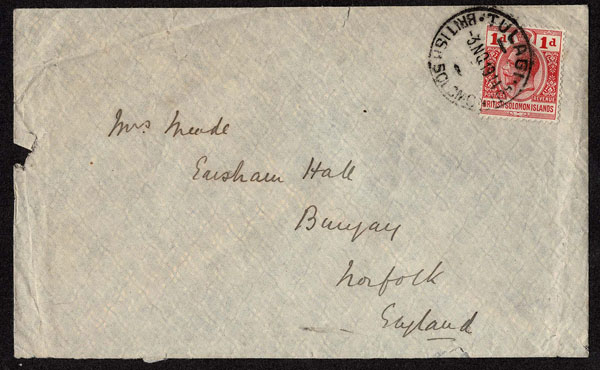 TULAGI
BRITISH SOLO
1d 1d
REVENUE
BRITISH SOLOMON ISLANDS
Mrs Meade
Earsham Hall
Bungay
Norfolk
England